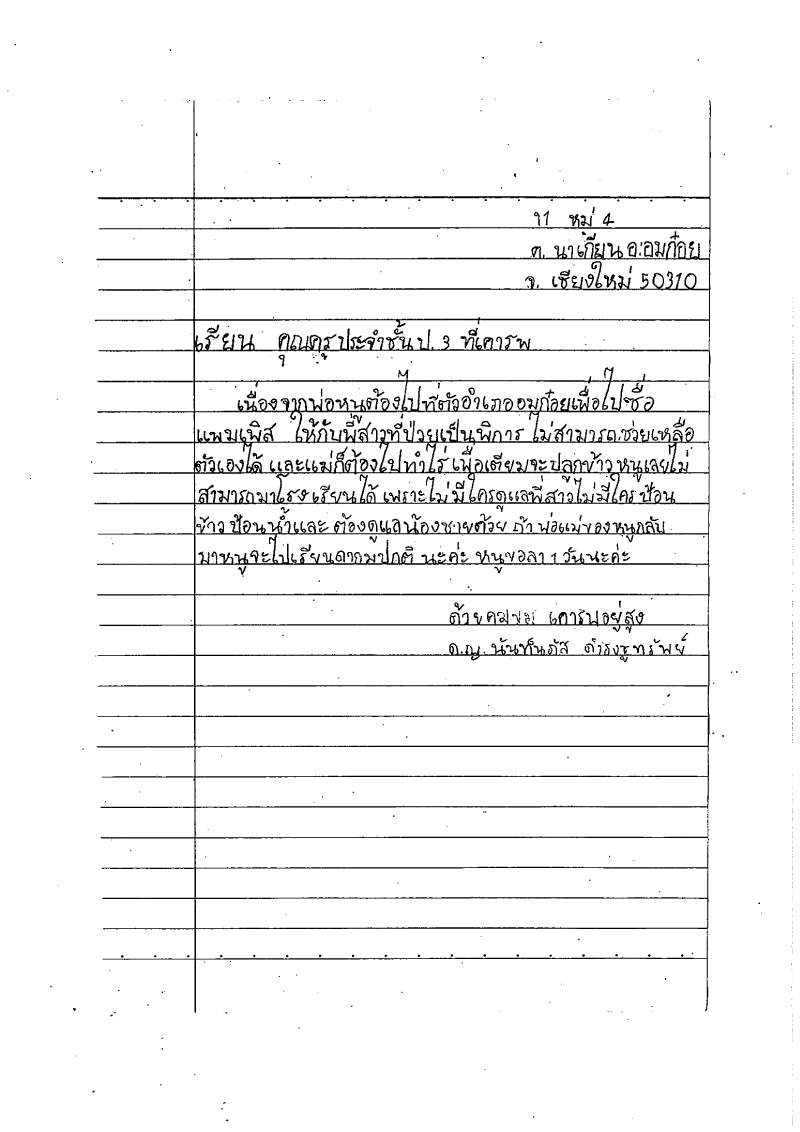 11 หมู่ 4
ต. นาเกียน อ.อมก๋อย
จ. เชียงใหม่ 50310
เรียน คุณครูประจำชั้น ป. 3 ที่เคารพ
เนื่องจากพ่อหนูต้องไปที่ตัวอำเภออมก๋อยเพื่อไปซื้อ
แพมเพิส ให้กับพี่สาวที่ป่วยเป็นพิการ ไม่สามารถช่วยเหลือ
ตัวเองได้ และแม่ก็ต้องไปทำไร่ เพื่อเตียมจะปลูกข้าว หนูเลยไม่
สามารถมาโรงเรียนได้ เพราะไม่มีใครดูแลพี่สาวไม่มีใครป้อน
ข้าว ป้อนน้ำและ ต้องดูแลน้องชายด้วย ถ้าพ่อแม่ของหนูกลับ
มาหนูจะไปเรียนตากมปกติ นะค่ะ หนูขอลา 1 วันนะค่ะ
ด้วย เคารพอยู่สูง
ด.ญ. นันท์นภัส